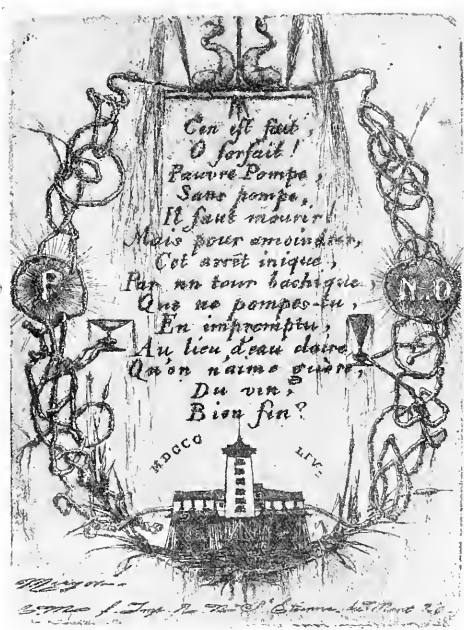 C'en est fait,
O forfait!
Pauvre Pompe,
Sans pompe,
Il faut mourir!
Mais pour amoindrir,
Cet arrêt inique,
Par un tour bachique,
Que ne pompes-tu,
En impromptu,
Au lieu d'eau claire,
Qu'on n'aime guère,
Du vin,
Bien fin?
P.
N.D
MDCCC LIV
Meryon
Imp. R. Nve St Etienne du Mont 26